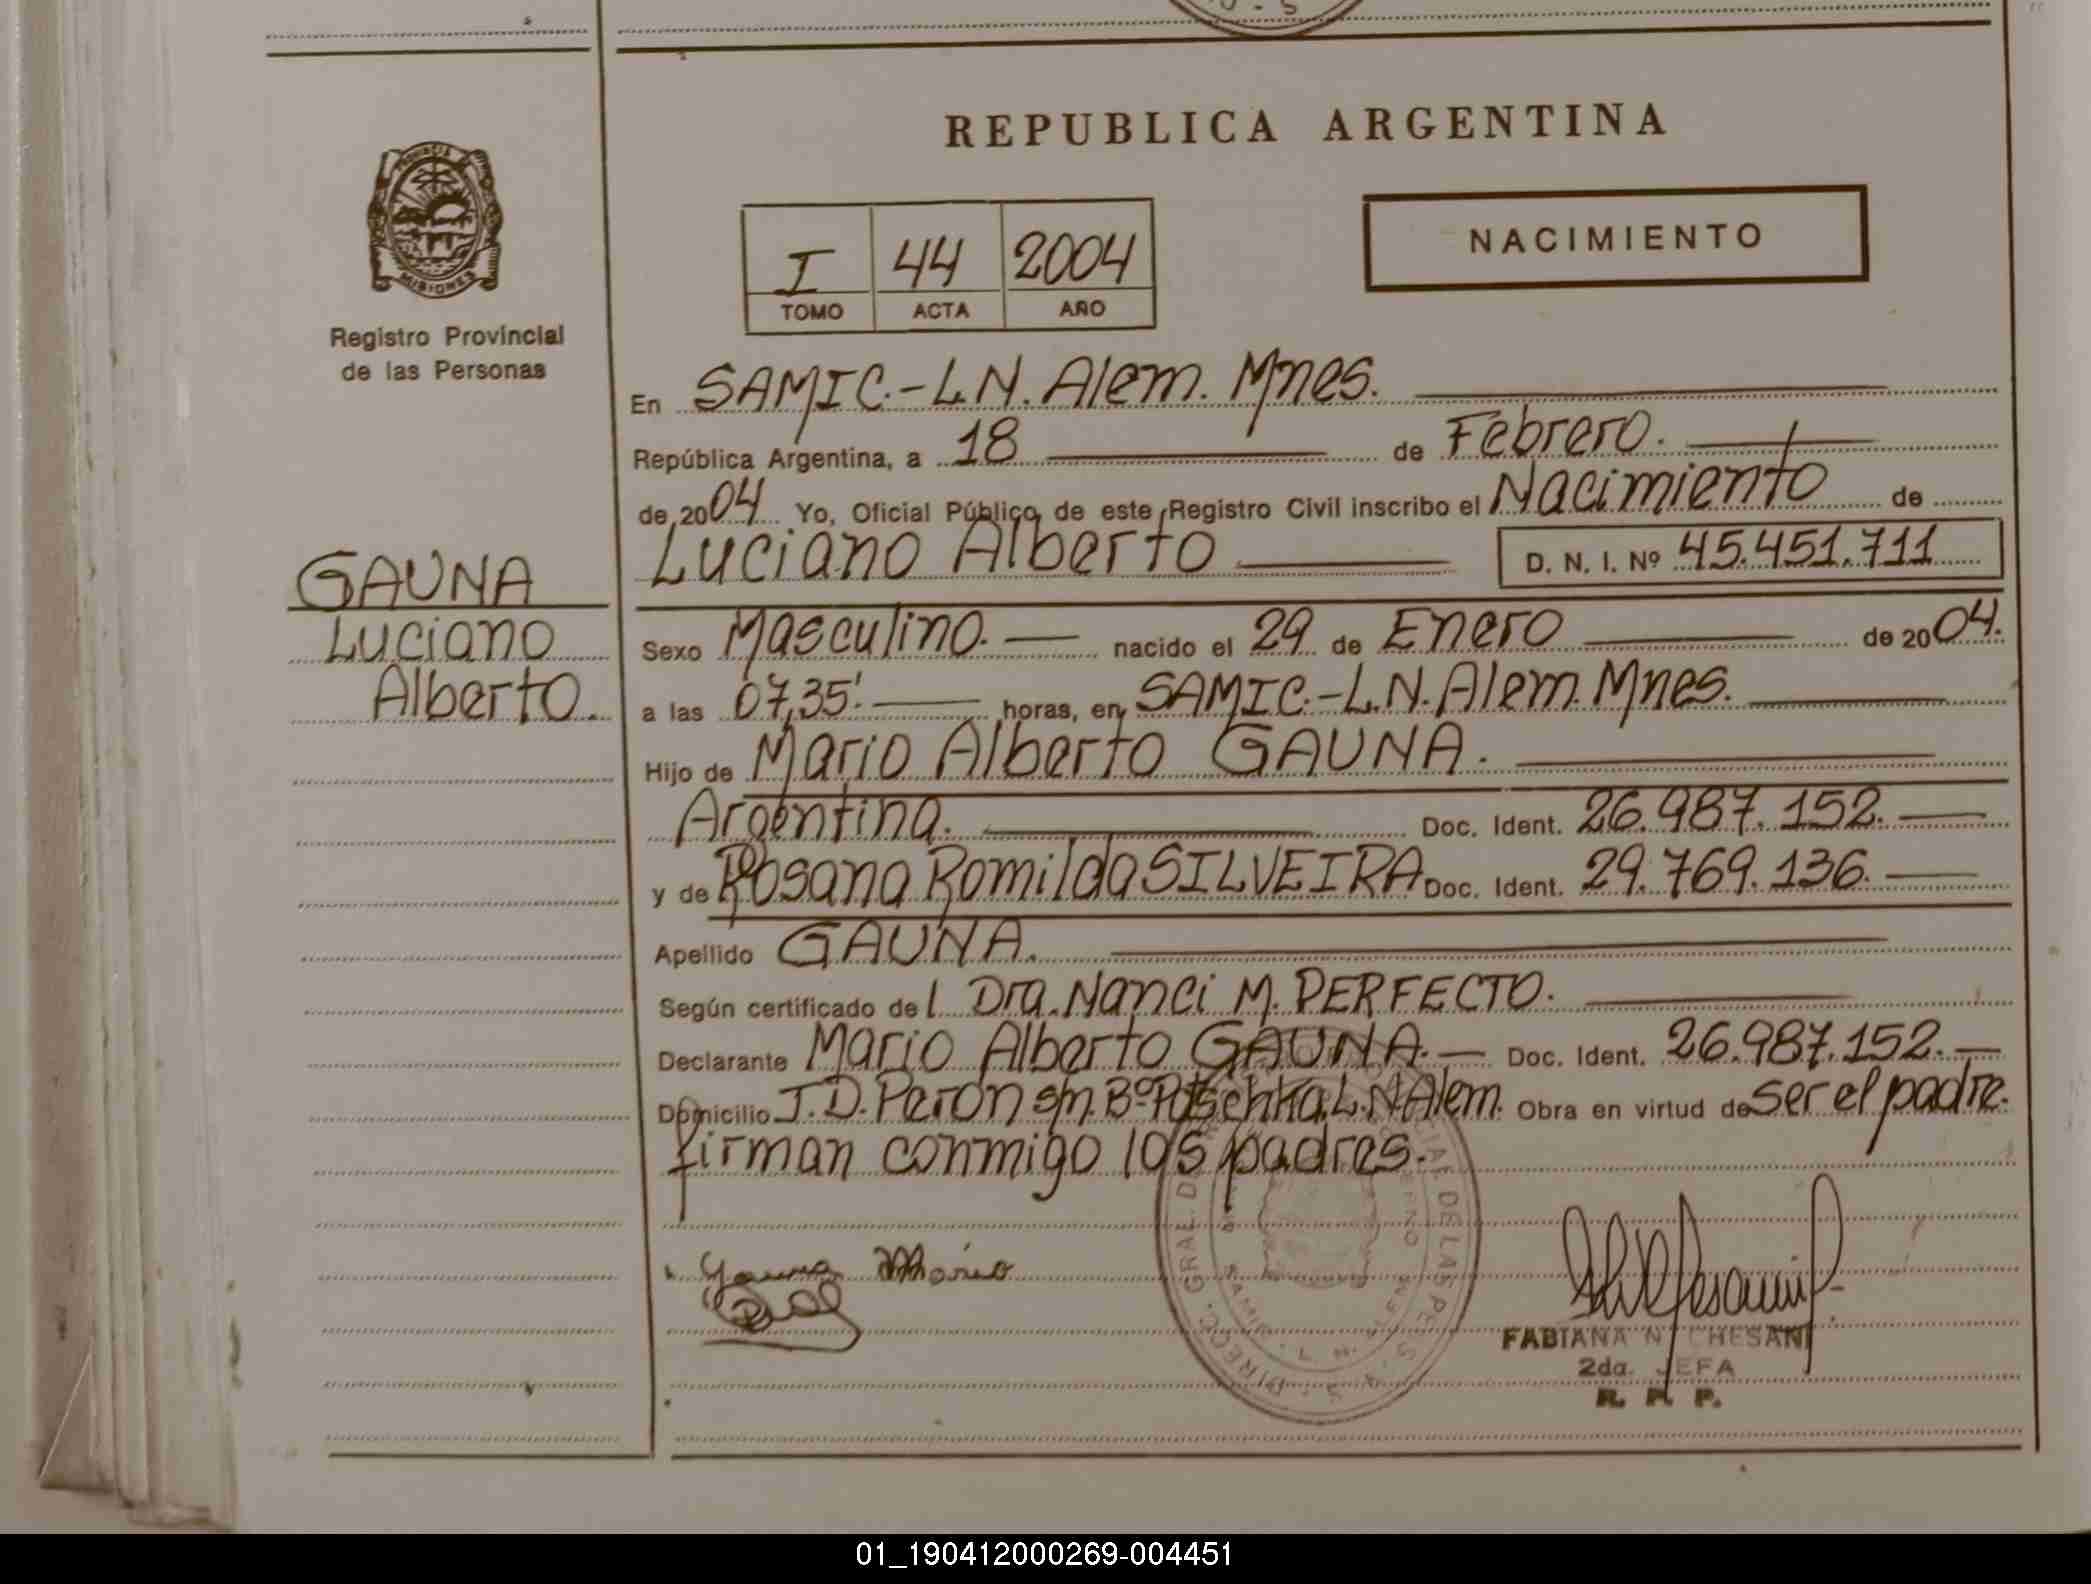 REPUBLICA ARGENTINA
PROVINCIA DE
MISIONES
Registro Provincial
de las Personas
I 44 2004
TOMO ACTA AÑO
NACIMIENTO
En SAMIC.-L.N. Alem. Mnes.
República Argentina, a 18 de Febrero.
de 2004 Yo, Oficial Público de este Registro Civil inscribo el Nacimiento de
Luciano Alberto D. N. I. Nº 45.451.711
GAUNA
Luciano
Alberto.
Sexo Masculino. nacido el 29 de Enero de 2004.
a las 07,35' horas, en SAMIC.-L.N. Alem. Mnes.
Hijo de Mario Alberto GAUNA.
Argentina. Doc. Ident. 26.987.152.
y de Rosana Romilda SILVEIRA Doc. Ident. 29.769.136.
Apellido GAUNA.
Según certificado de l Dra. Nanci M. PERFECTO.
Declarante Mario Alberto GAUNA. Doc. Ident. 26.987.152.
Domicilio J.D. Peron s/n. Bº L.N Alem. Obra en virtud de ser el padre.
firman conmigo los padres.
Gauna Mario
FABIANA N CHESANI
2da. JEFA
R. P. P.
01_190412000269-004451